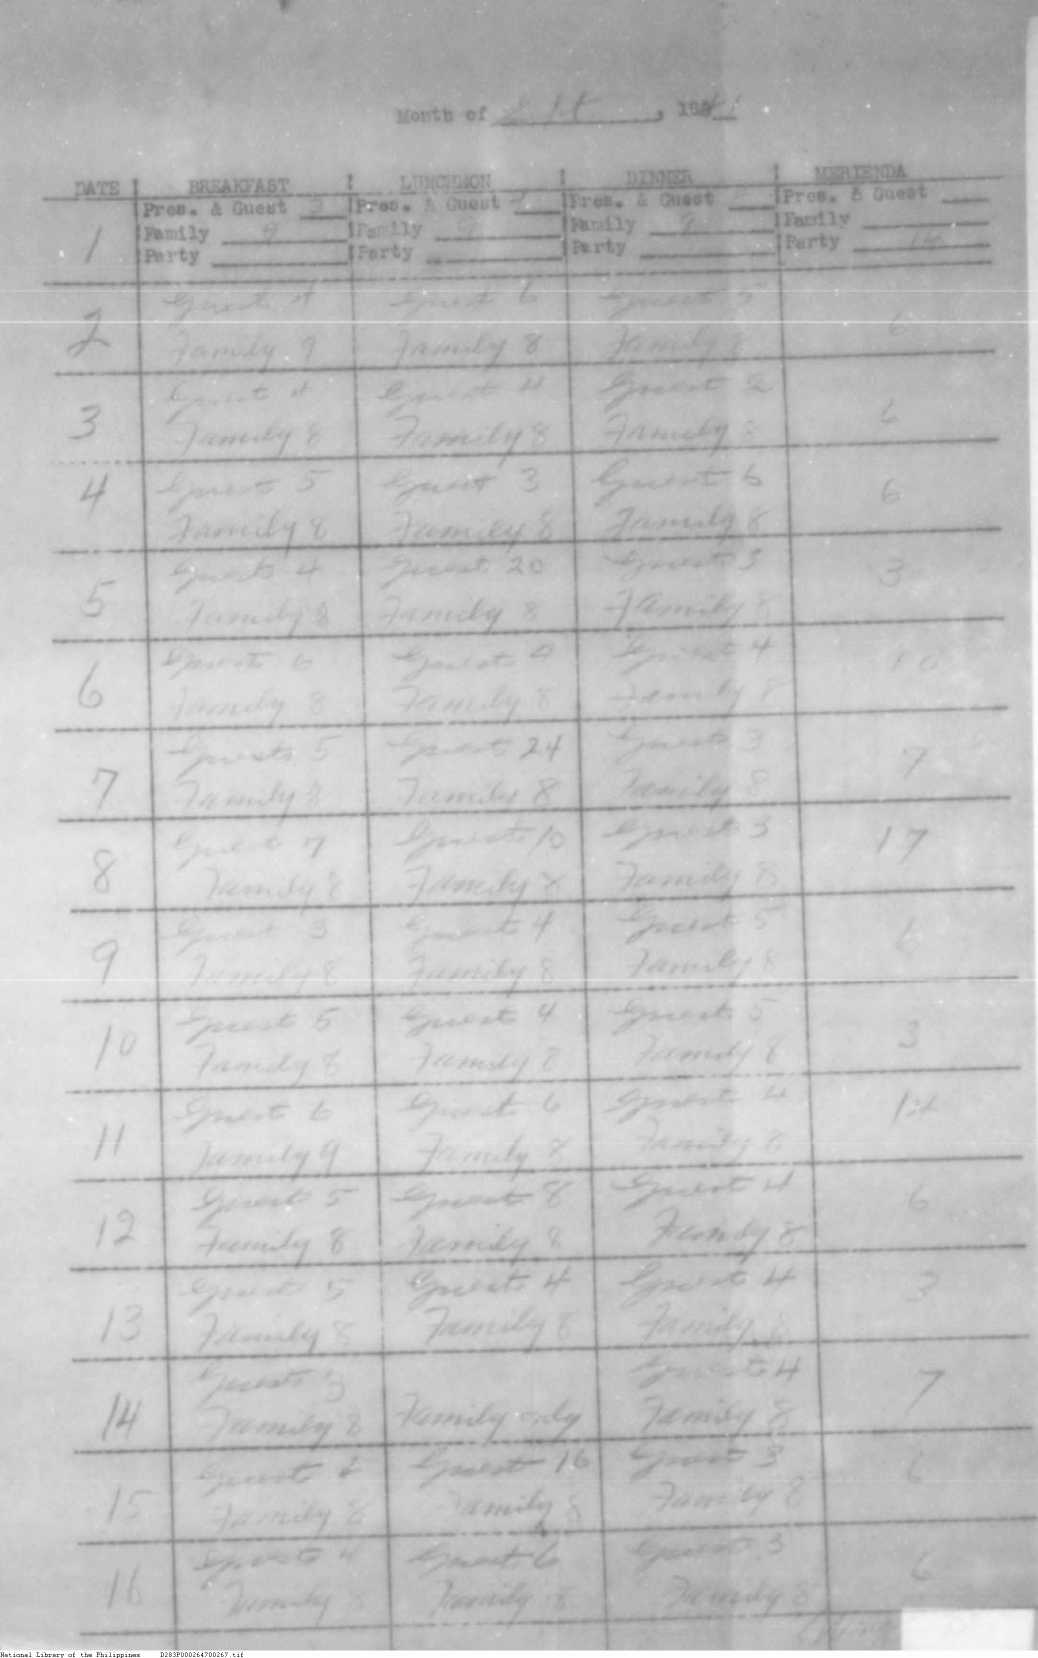 Month of Sept, 1941
DATE BREAKFAST LUNCHEON DINNER MERIENDA
Pres. & Guest 3 Pres. & Guest Pres. & Guest Pres. & Guest
1 Family 9 Family 9 Family 8 Family
Party Party Party Party 14
Guest 4 Guest 6 Guest 5
2 6
Family 9 Family 8 Family
Guest 4 Guest 4 Guest 2
3 6
Family 8 Family 8 Family 8
4 Guest 5 Guest 3 Guest 6 6
Family 8 Family 8 Family 8
Guest 4 Guest 20 Guest 3 3
5
Family 8 Family 8 Family 8
Guests 6 Guests 4 Guest 4 10
6
Family 8 Family 8 Family 8
Guests 5 Guest 24 Guest 3
7 7
Family 8 Family 8 Family 8
Guest 7 Guests 10 Guest 3 17
8
Family 8 Family 8 Family 8
Guest 3 Guest 4 Guest 5
9 6
Family 8 Family 8 Family 8
Guest 5 Guest 4 Guest 5
10 3
Family 8 Family 8 Family 8
Guest 6 Guest 6 Guest 4
11
Family 9 Family 8 Family 8
Guest 5 Guest 8 Guest 4 6
12
Family 8 Family 8 Family 8
Guest 5 Guest 4 Guest 4 3
13
Family 8 Family 8 Family 8
Guest 3 Guest 4
14 7
Family 8 Family only Family 8
Guest Guest 16 Guest 3 6
15
Family 8 Family 8 Family 8
Guest 4 Guest 6 Guest 3
16 6
Family 8 Family 8 Family 8
National Library of the Philippines D283P000264700267.tif